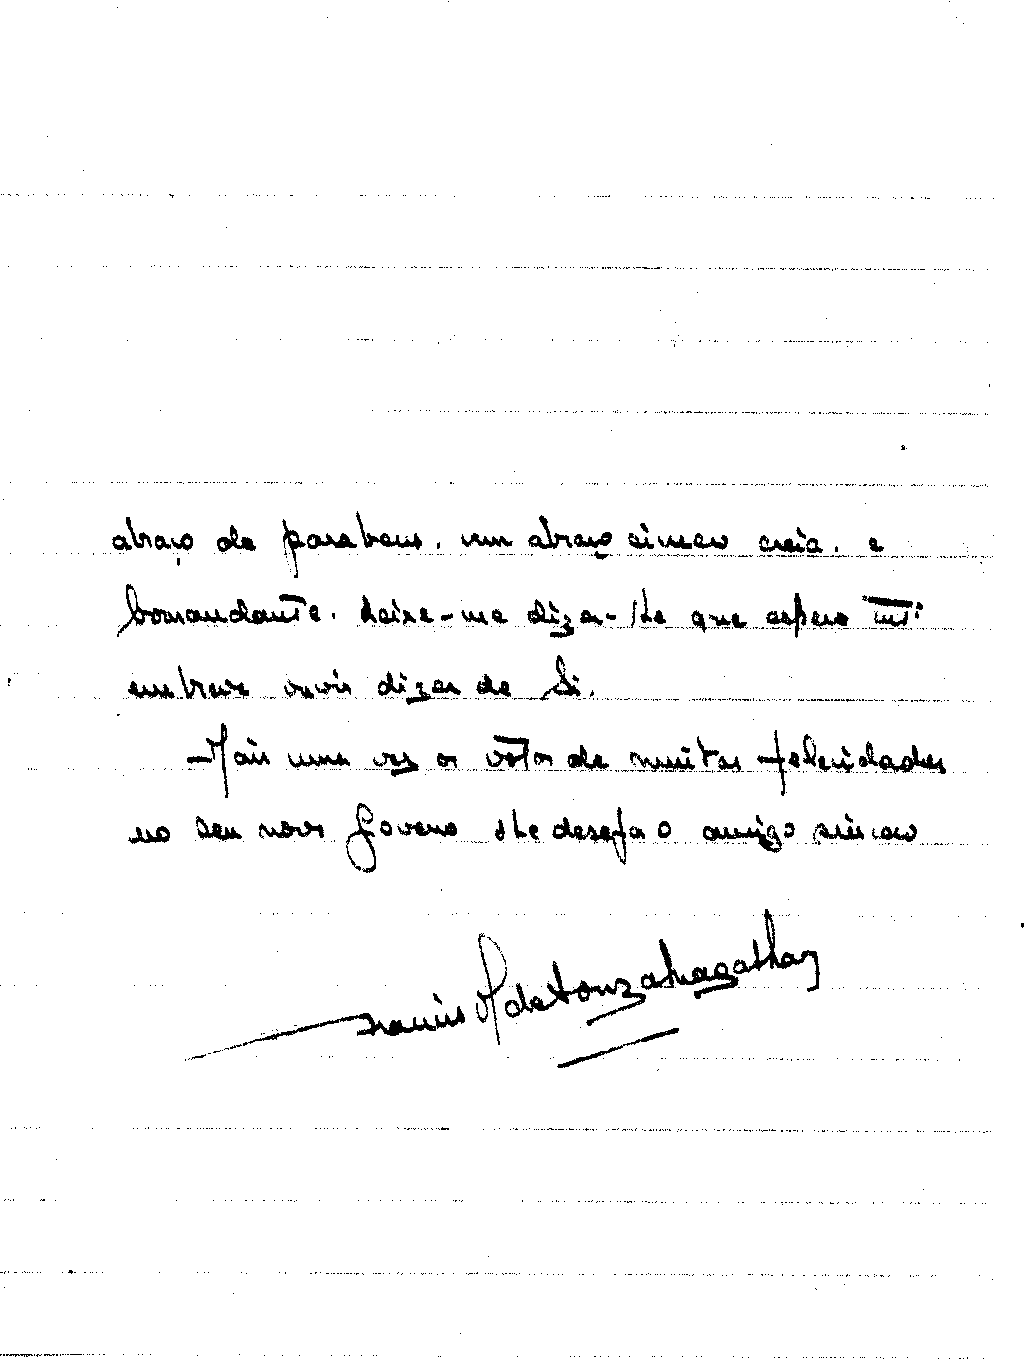 abraço de parabens, um abraço sincero creia, e
Comandante. Deixe-me dizer-lhe que espero
em breve ouvir dizer de Si.
Mais uma vez os votos de muitas felicidades
no seu novo Governo lhe deseja o amigo sincero
de Souza Magalhães